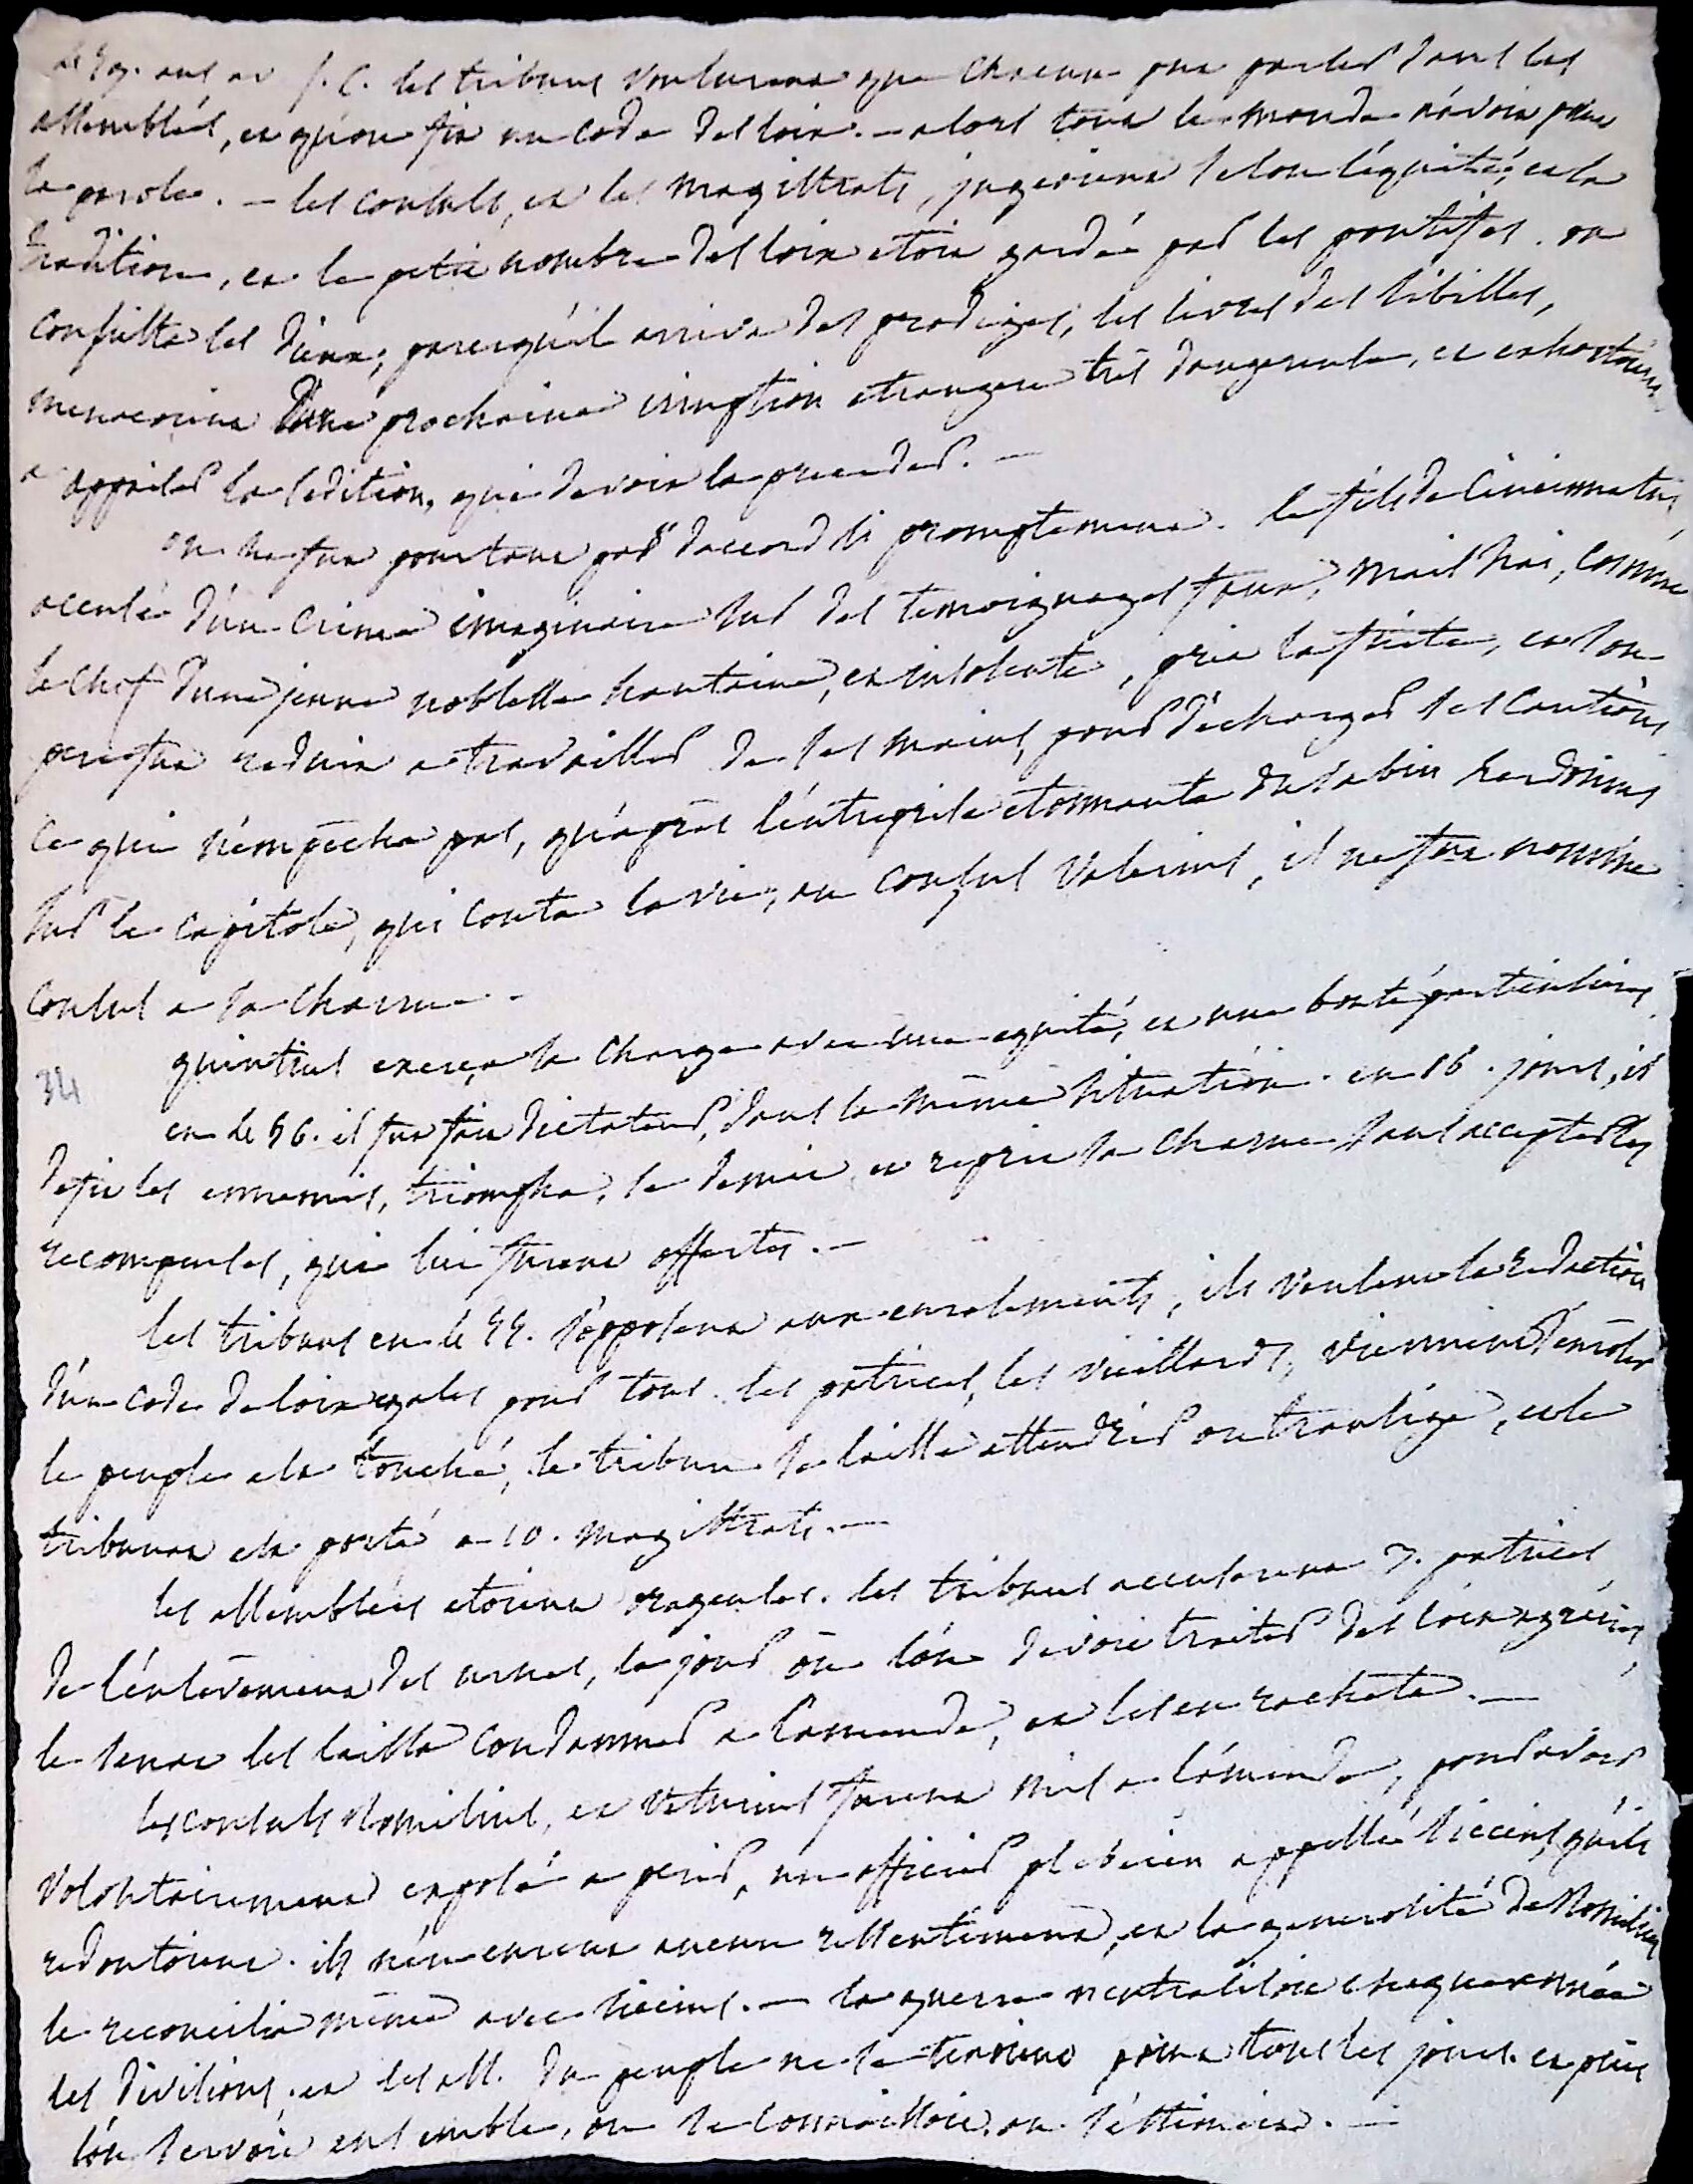 ans av J. C. les tribuns voulurent que chacun put parler dans les
assemblées, et qu'on fit un code des loix. - alors tout le monde n'avoit point
la parole. - les consuls, et les magistrats, jugeoient selon l'équité, et la
tradition, et le petit nombre des loix etoit gardé par les pontifes. on
consulta les dieux, parcequ'il arriva des prodiges, les livres des sibilles,
menacoient d'une prochaine irruption etrangere très dangereuse, et exhortoient
a appaiser la sédition, qui devoit la preceder. -
on ne fut pourtant pas d'accord si promptement. le fils de Cincinnatus
accusé d'un crime imaginaire sur des temoignages faux, mais haï, comme
le chef d'une jeune noblesse hautaine, et insolente, prit la fuite, et son
pere fut reduit a travailler de ses mains, pour décharger ses cautions
ce qui n'empêcha pas, qu'après l'entreprise etonnante du sabin herdonius
sur le capitole, qui couta la vie, au consul Valerius, il ne fut nommé
consul a sa charrue.
quintius exerça sa charge avec une equité, et une bonté particulieres
34
en le 56. il fut fait dictateur, dans la même situation. en 16. jours, il
defit les ennemis, triompha, se demit, et reprit sa charrue sans accepter les
recompenses, qui lui furent offertes. -
les tribuns en le 55. s'opposent aux enrolements, ils veulent la redaction
d'un code de loix egales pour tous. les patrices, les vieillards, viennent s'enroler
le peuple est touché, le tribun se laisse attendrir on transige, et le
tribunat est porté a 10. magistrats. -
les assemblées etoient orageuses. les tribuns accuserent 3. patrices
de l'enlèvement des urnes, le jour où l'on devoit traiter des loix agraires,
le senat les laissa condamner a l'amende, et les en racheta. -
les consuls Romilius, et veturius furent mis a l'amende, pour avoir
volontairement exposé a perir, un officier plebeien appellé siccius, qu'ils
redoutoient. ils n'en eurent aucun ressentiment, et la generosité de Romilius
le reconcilia même avec siccius. - la guerre neutralisoit chaque année
les divisions, et les ass. du peuple ne se tenoient point tous les jours. et puis
l'on servoit ensemble, on se connoissoit, on s'estimoit. -